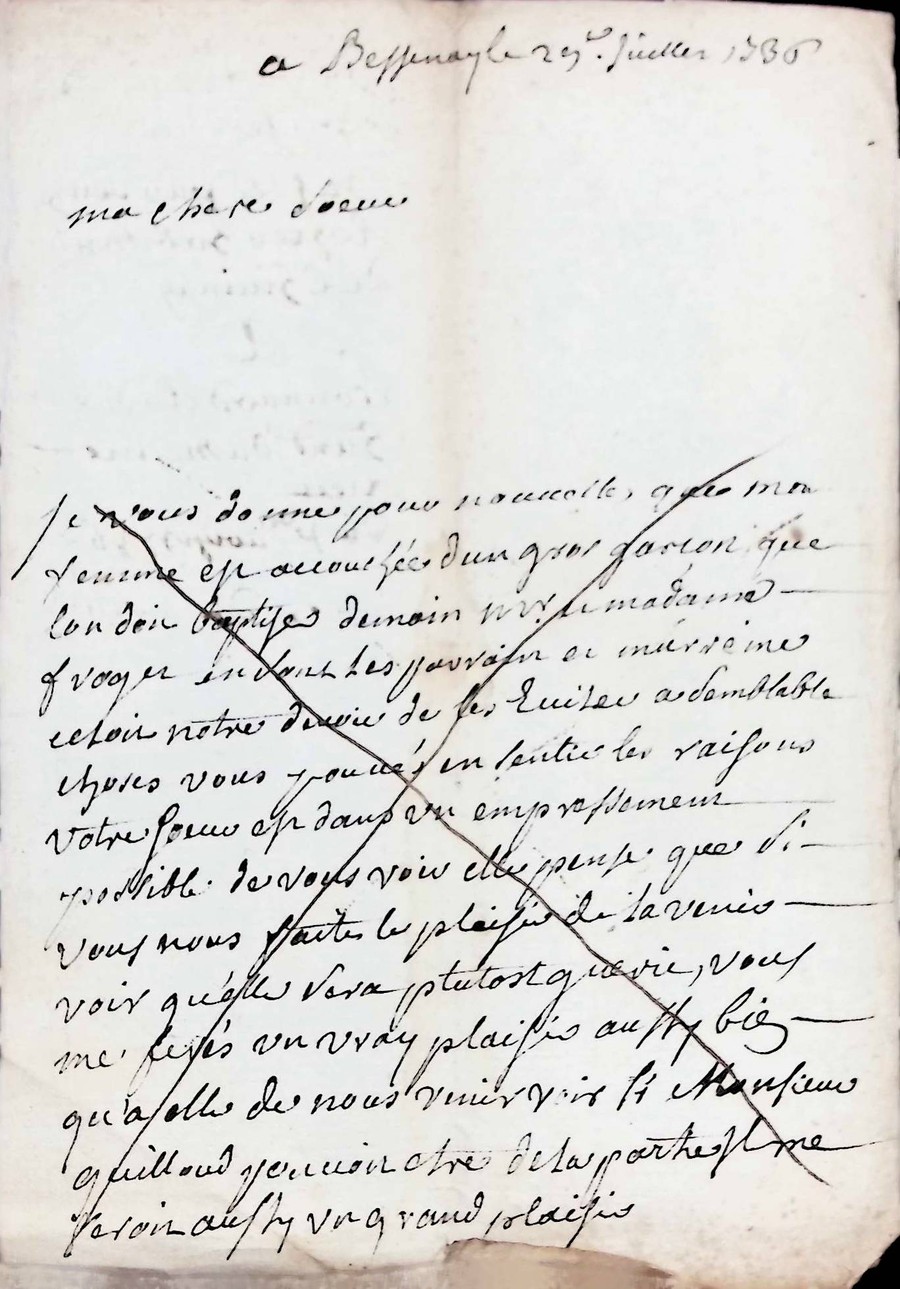 a Bessenay le 29e. Juillet 1736
ma chere soeur
Je vous donne pour nouvelle, que mon
femme est accouchée dun gros garcon que
lon doit baptiser demain mr. et madame
froger en sont les parrain et marreine
cetoit notre devoir de les Inviter a semblable
choses vous pouvés en sentir les raisons
votre soeur est dans un empressement
possible de vous voir elle pense que si
vous nous faite le plaisir de la venir
voir qu'elle sera plutost guerie, vous
me ferés un vray plaisir aussy bien
qu'a elle de nous venir voir si Monsieur
guilloud pouvoit etre de la partie Il me
feroit aussy un grand plaisir